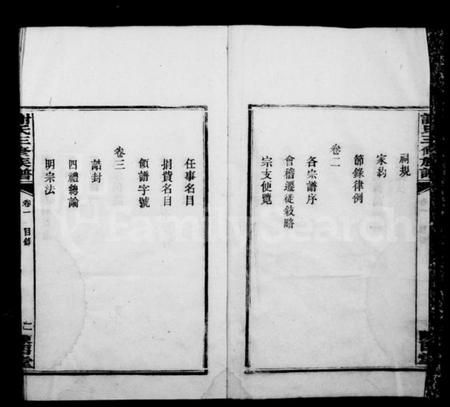 祠規
家約
節錄律例
卷二
各宗譜序
會稽遷徙敘略
宗支便覽
任事名目
捐貲名目
領譜字號
卷三
誥封
四禮總論
明宗法
謝氏三修族譜
卷一 目錄
FamilySearch